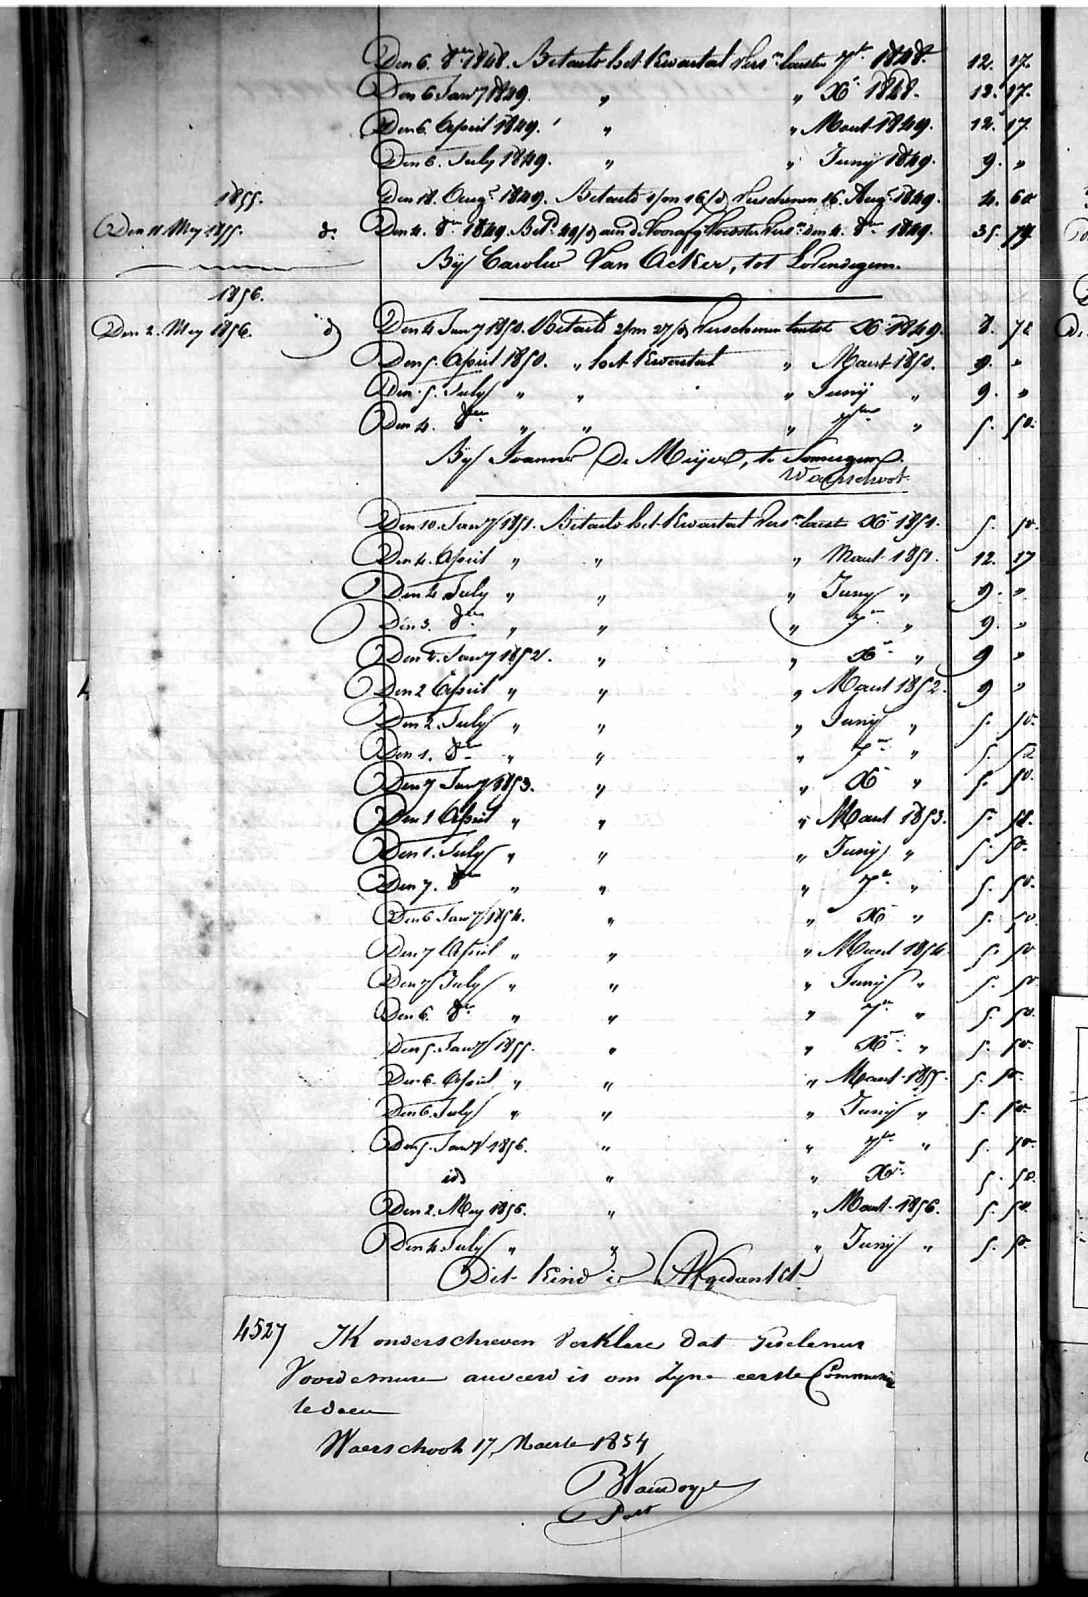 Den 6. 8ber 1848. Betaeld het Kwartaal vers.n laeste 7br 1848. 12. 17.
Den 6 Janry 1849. " " Xr 1848. 12. 17.
Den 6. April 1849. " " Maert 1849. 12. 17
Den 6. July 1849. " " Junij 1849. 9. "
1855.
Den 18. Augt 1849. Betaeld 1/m 16/d verschenen 16. Augt 1849. 4. 60
Den 11 May 1855. d.
Den 4. 8br 1849. Bet.d 49/d aen de Voorafg. vers.n den 4. 8br 1849. 35. 74
Bij Carolus Van Acker, tot Lovendegem.
1856.
Den 2. May 1856. d
Den 4 Janry 1850. Betaeld 2/m 27/d verschenen laeste Xr 1849. 8. 72
Den 5. April 1850. " het Kwartaal " Maert 1850. 9. "
Den 5. July " " " Junij " 9. "
Den 4. 8ber " " " 7ber " 5. 50.
Bij Joannes De Meijer, te Somergem.
Waerschoot.
Den 10. Janry 1851. Betaeld het Kwartaal vers.n laest Xr 1851. 5. 50.
Den 4. April " " " Maert 1851. 12. 17
Den 4 July " " " Junij " 9. "
Den 3. 8ber " " " 7br " 9. "
Den 2. Janry 1852. " " Xr " 9 "
Den 2 April " " " Maert 1852. 9 "
Den 2. July " " " Junij " 5. 50.
Den 1. 8br " " " 7br " 5. 52
Den 7 Janry 1853. " " Xr " 5. 50.
Den 1 April " " " Maert 1853. 5. 50.
Den 1. July " " " Junij " 5. 50.
Den 7. 8br " " " 7br " 5. 50.
Den 6 Janry 1854. " " Xr " 5. 50.
Den 7 April " " " Maert 1854. 5. 50
Den 7 July " " " Junij " 5. 50
Den 6. 8br " " " 7br " 5. 50.
Den 5. Janry 1855. " " Xr " 5. 50.
Den 6. April " " " Maert 1855. 5. 50.
Den 6. July " " " Junij " 5. 50.
Den 5. Janry 1856. " " 7br " 5. 50.
id " " Xbr. 5. 50.
Den 2. May 1856. " " Maert 1856. 5. 50.
Den 4 July " " " Junij " 5. 50.
Dit Kind is Afgedankt
4527
IK onderschreven Verklare dat
Voordemure anveerd is om zyne eerste Communie
te doen
Waerschoot 17 Maerte 1854